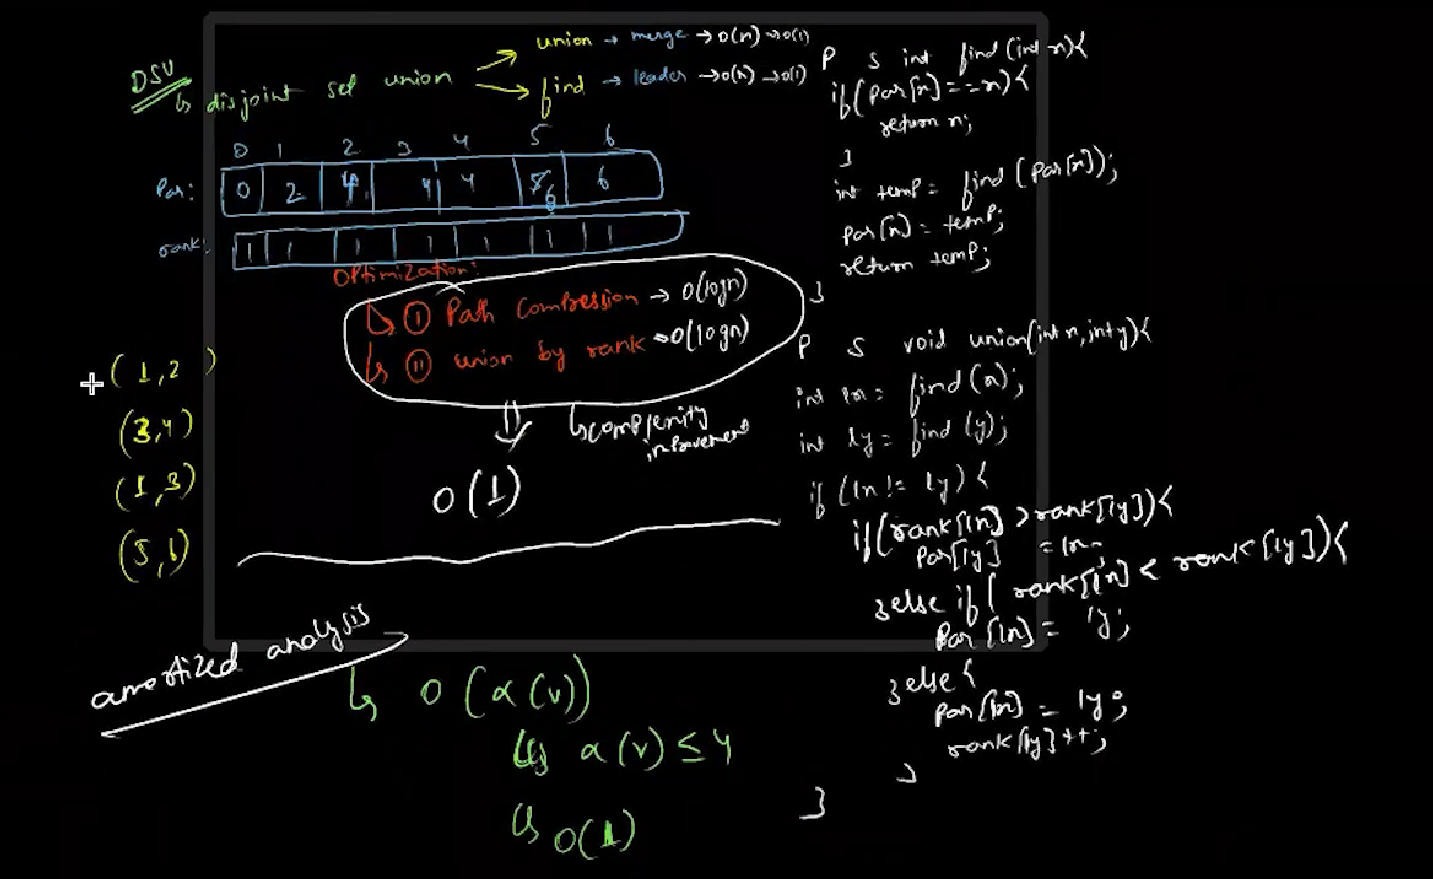 DSU
↳ disjoint set union
union → merge → O(n) → O(1)
find → leader → O(n) → O(1)
0 1 2 3 4 5 6
Par: 0 2 4 4 4 5 6 6
rank: 1 1 1 1 1 1 1
Optimization:
↳ (I) Path Compression → O(logn)
↳ (II) union by rank → O(logn)
↳ complexity
O(1)
(1,2)
(3,4)
(1,3)
(5,6)
amortized analysis
↳ O(α(v))
↳ α(v) ≤ 4
↳ O(1)
P S int find(int x){
if(par[x]==x){
return x;
}
int temp = find(par[x]);
par[x] = temp;
return temp;
}
P S void union(int x, int y){
int lx = find(x);
int ly = find(y);
if(lx != ly){
if(rank[lx] > rank[ly]){
par[ly] = lx;
}else if(rank[lx] < rank[ly]){
par[lx] = ly;
}else{
par[lx] = ly;
rank[ly]++;
}
}